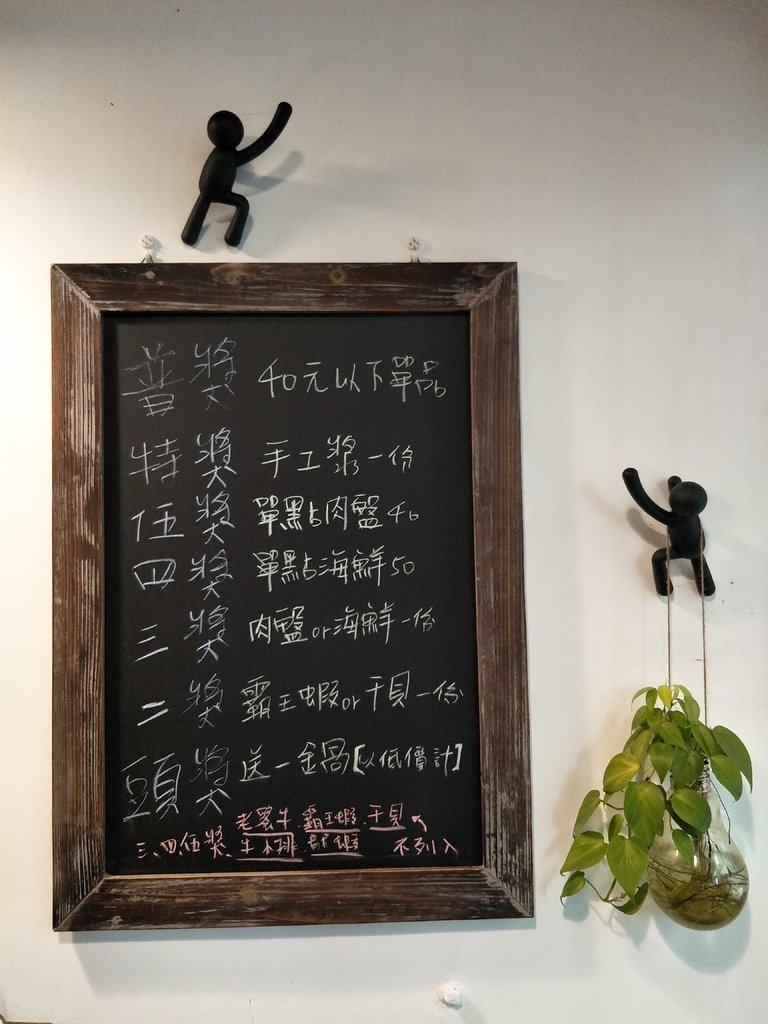 普獎 40元以下單品
特獎 手工漿一份
伍獎 單點肉盤40
四獎 單點海鮮50
三獎 肉盤or海鮮一份
二獎 霸王蝦or干貝一份
頭獎 送一鍋[以低價計]
老饕牛 霸王蝦 干貝
三、四伍獎 牛小排 不列入